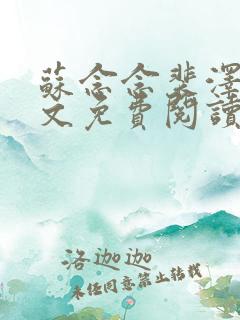 蘇念念裴澤
文免費閱讀
洛迦迦
未經同意禁止轉載